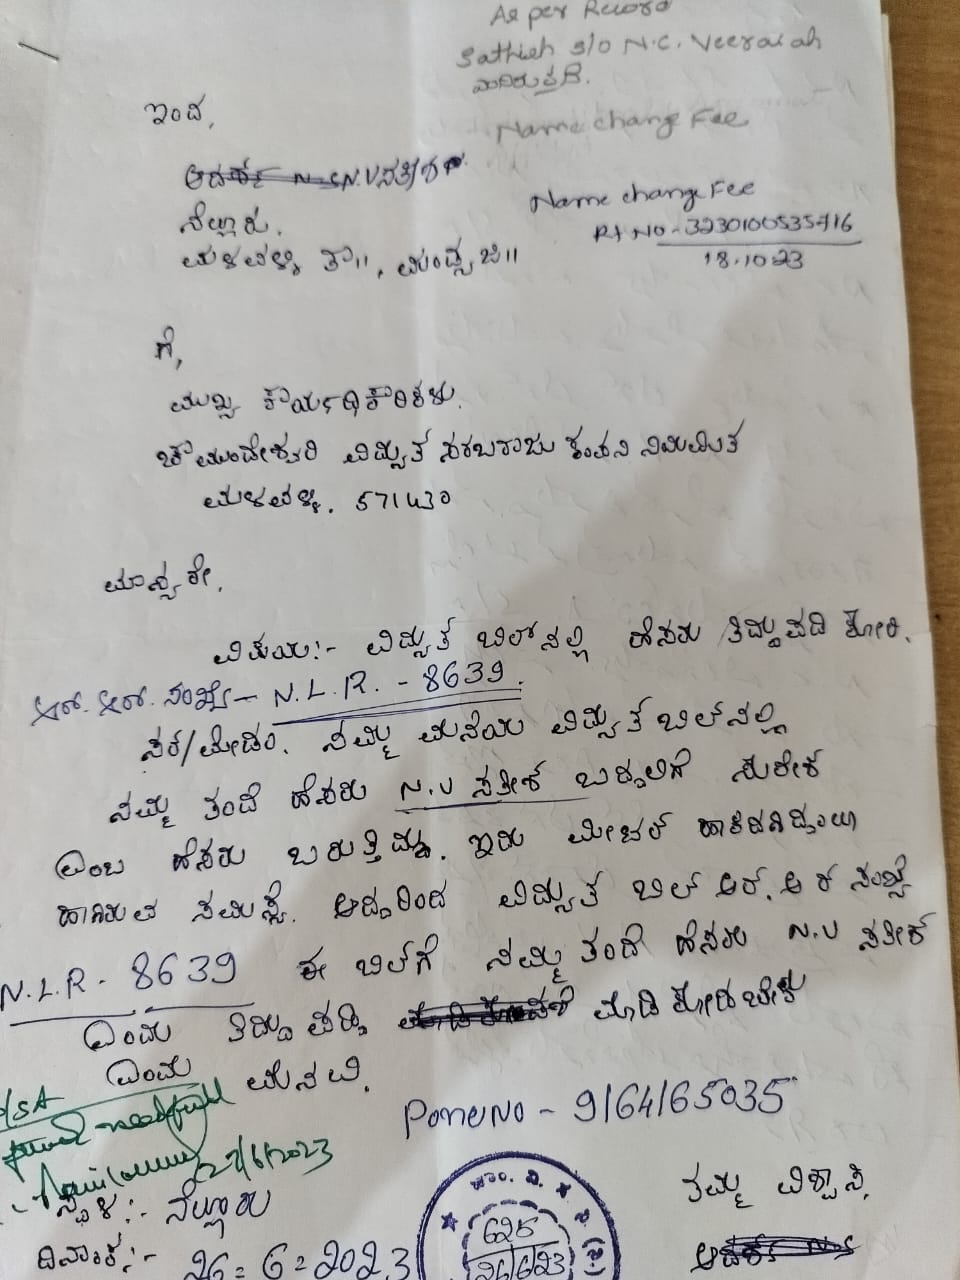 As per Record
Sathish S/o N.C. Veeraiah
Name change Fee
ಇಂದ,
N.V ಸತೀಶ
Name change Fee
ನೆಲ್ಲೂರು.
Rt No - 3230100535716
ಮಳವಳ್ಳಿ ತಾ||, ಮಂಡ್ಯ ಜಿ||
18.10.23
ಗೆ,
ಮುಖ್ಯ ಕಾರ್ಯಾಧಿಕಾರಿಗಳು.
ಚಾಮುಂಡೇಶ್ವರಿ ವಿದ್ಯುತ ಸರಬರಾಜು ಕಂಪನಿ ನಿಯಮಿತ
ಮಳವಳ್ಳಿ. 571430
ಮಾನ್ಯರೇ,
ವಿಷಯ:- ವಿದ್ಯುತ ಬಿಲ್‌ನಲ್ಲಿ ಹೆಸರು ತಿದ್ದುಪಡಿ ಕೋರಿ.
ಆರ್. ಆರ್. ಸಂಖ್ಯೆ - N.L.R. - 8639.
ಸರ/ಮೇಡಂ. ನಮ್ಮ ಮನೆಯ ವಿದ್ಯುತ ಬಿಲ್‌ನಲ್ಲಿ
ನಮ್ಮ ತಂದೆ ಹೆಸರು N.V ಸತೀಶ ಬದಲಿಗೆ ಸುರೇಶ
ಎಂಬ ಹೆಸರು ಬರುತ್ತಿದ್ದು. ಇದು ಮೀಟರ್
ಹಾಗಿರುವ ಸಮಸ್ಯೆ. ಆದ್ದರಿಂದ ವಿದ್ಯುತ ಬಿಲ್ ಆರ್. ಆರ್ ಸಂಖ್ಯೆ
N.L.R - 8639 ಈ ಬಿಲ್‌ಗೆ ನಮ್ಮ ತಂದೆ ಹೆಸರು N.V ಸತೀಶ
ಎಂದು ತಿದ್ದುಪಡಿ ಮಾಡಿ ಕೊಡಬೇಕು
ಎಂದು ಮನವಿ.
Pone No - 9164165035
27/6/2023
ಸ್ಥಳ:- ನೆಲ್ಲೂರು
ತಮ್ಮ ವಿಶ್ವಾಸಿ,
ದಿನಾಂಕ:- 26-6-2023
625
26/6/23